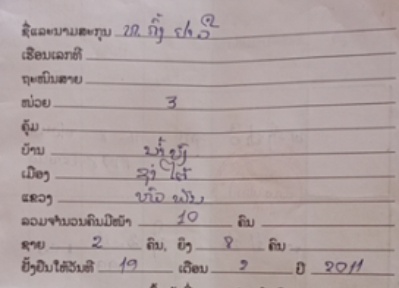 ຊື່ແລະນາມສະກຸນ ທ ກົ້ງ ຢ່າງ
ເຮືອນເລກທີ
ຖະໜົນສາຍ
ໜ່ວຍ 3
ຄຸ້ມ
ບ້ານ
ເມືອງ ຊຳໃຕ້
ແຂວງ ຫົວພັນ
ລວມຈຳນວນຄົນມີໜ້າ 10 ຄົນ
ຊາຍ 2 ຄົນ, ຍິງ 8 ຄົນ
ຢັ້ງຢືນໃຫ້ວັນທີ 19 ເດືອນ 2 ປີ 2011